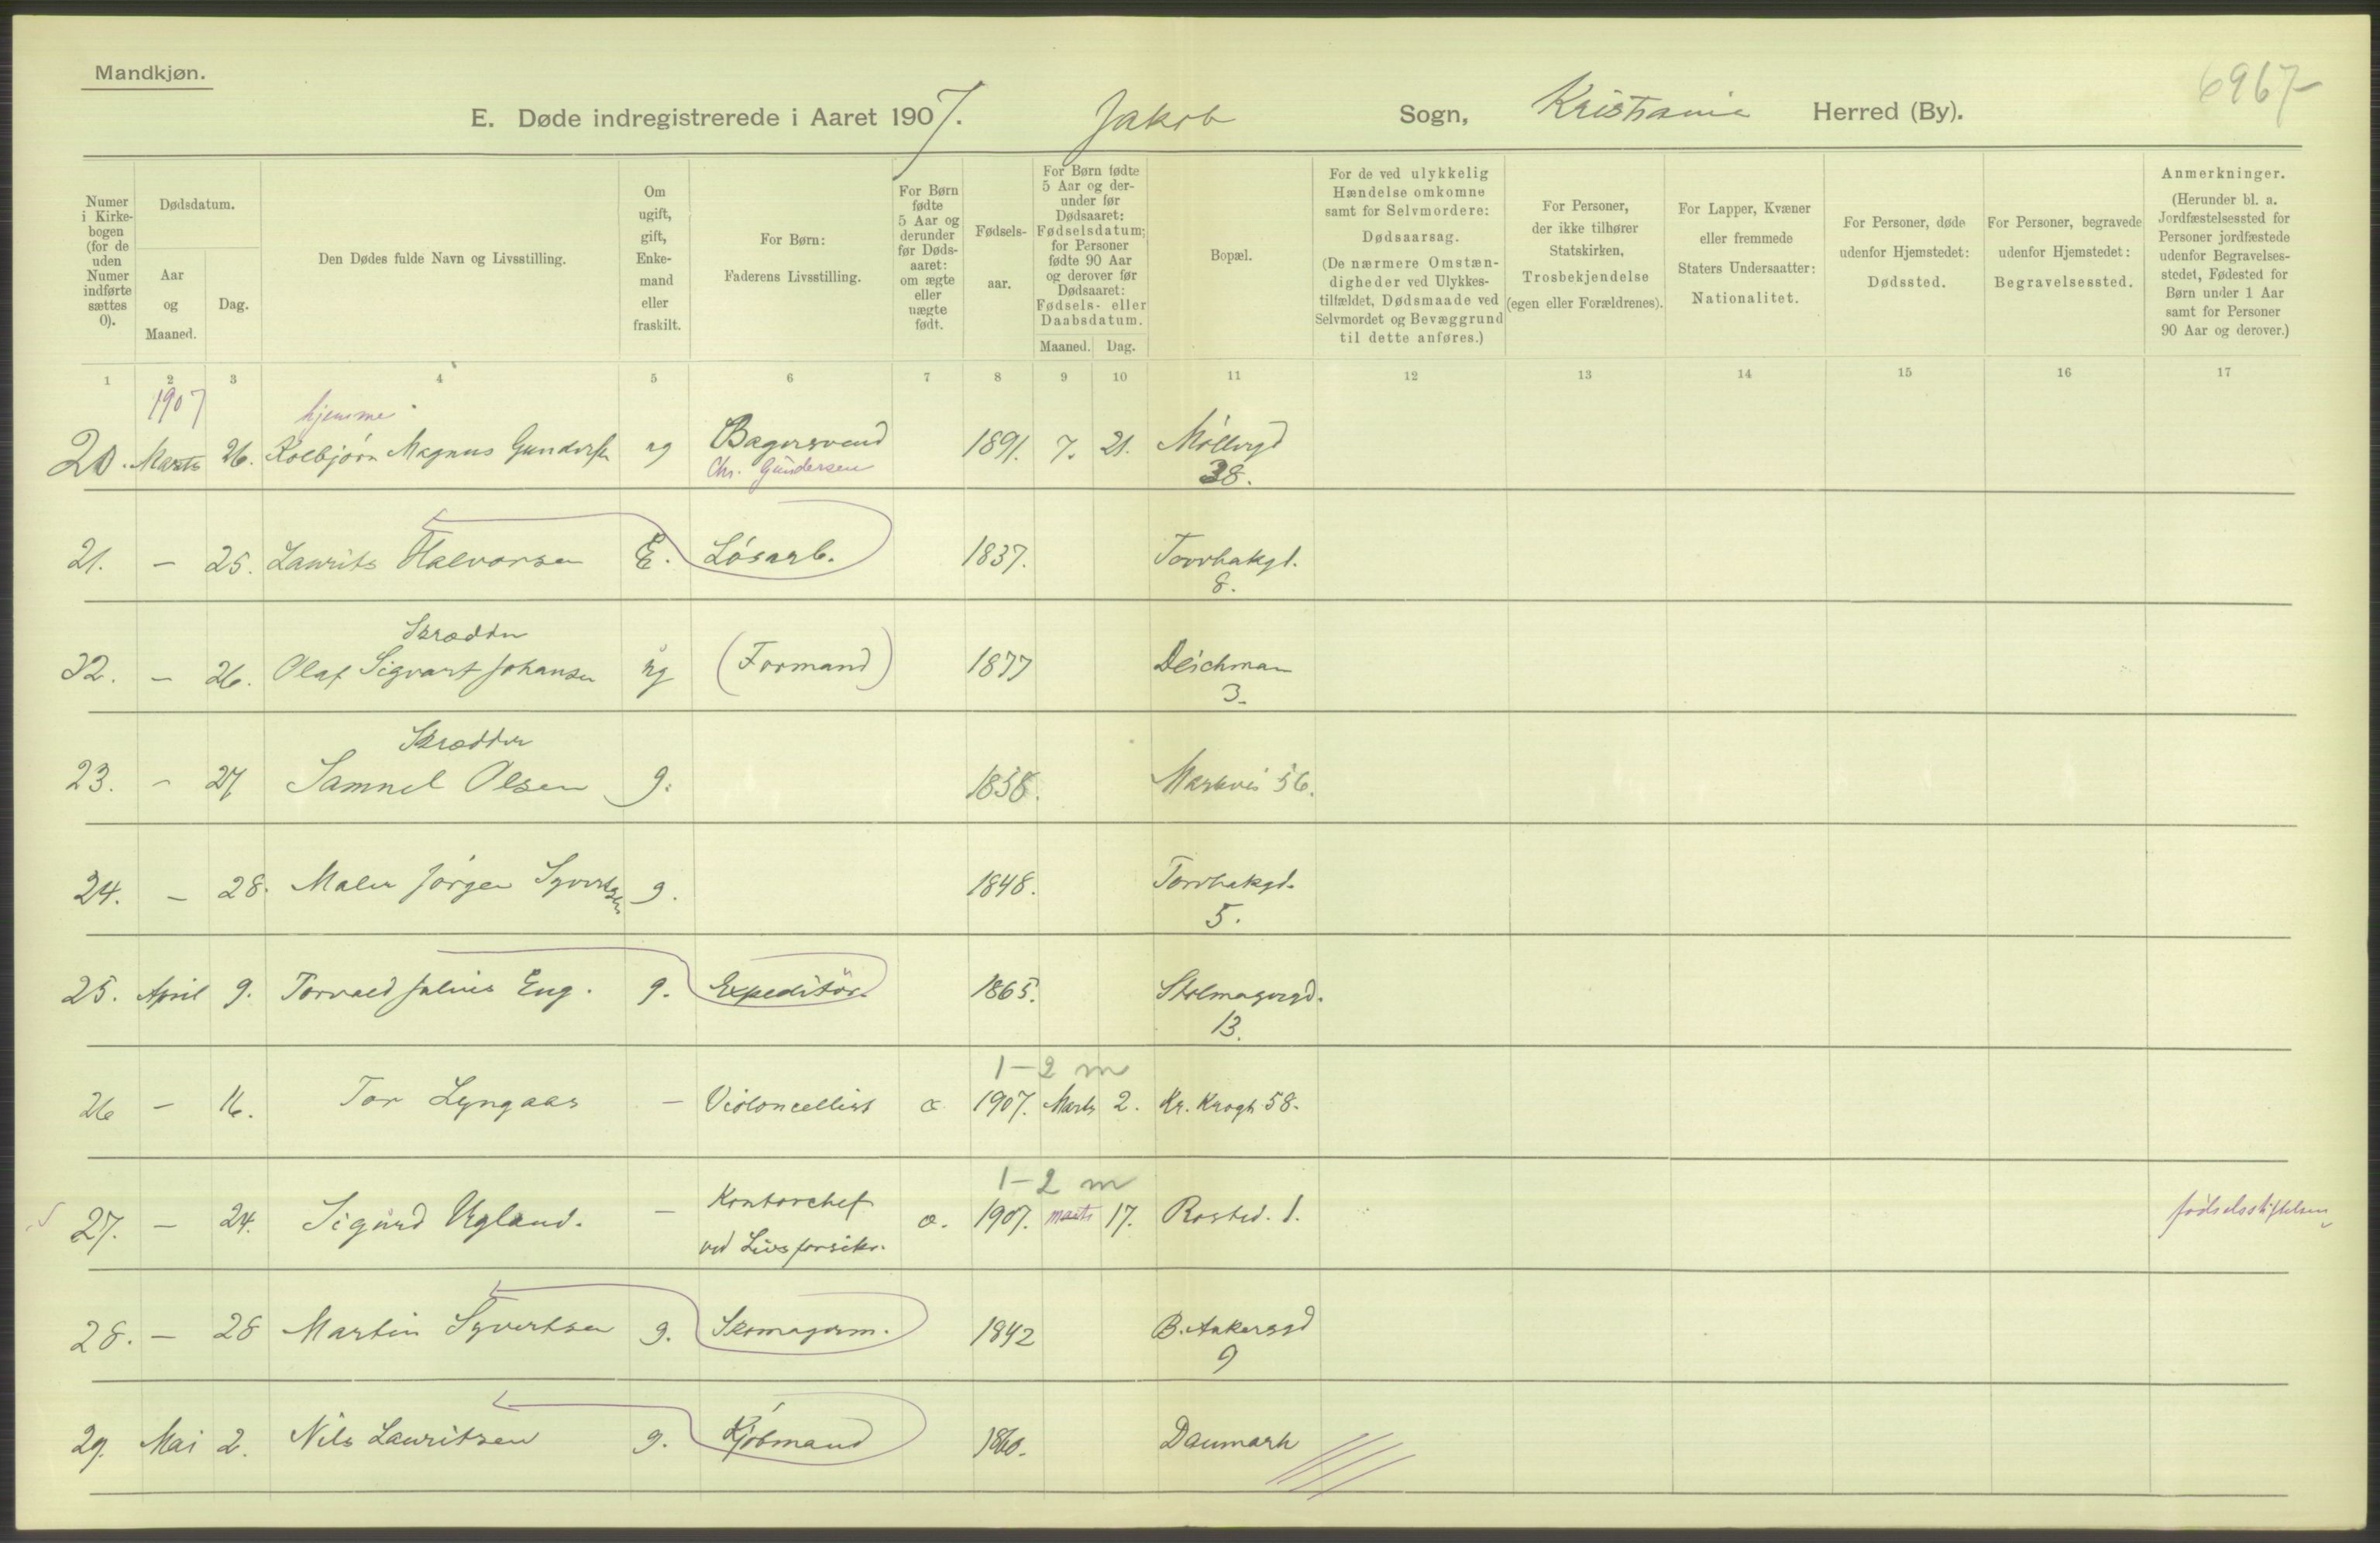 Mandkjøn.
6967
E. Døde indregistrerede i Aaret 1907. Jakob Sogn, Kristiania Herred (By).
Numer i Kirkebogen (for de uden Numer indførte sættes 0).
Dødsdatum.
Aar og Maaned.
Dag.
Den Dødes fulde Navn og Livsstilling.
Om ugift, gift, Enkemand eller fraskilt.
For Børn: Faderens Livsstilling.
For Børn fødte 5 Aar og derunder før Dødsaaret: om ægte eller uægte født.
Fødselsaar.
For Børn fødte 5 Aar og derunder før Dødsaaret: Fødselsdatum; for Personer fødte 90 Aar og derover før Dødsaaret: Fødsels- eller Daabsdatum.
Maaned. Dag.
Bopæl.
For de ved ulykkelig Hændelse omkomne samt for Selvmordere: Dødsaarsag. (De nærmere Omstændigheder ved Ulykkestilfældet, Dødsmaade ved Selvmordet og Bevæggrund til dette anføres.)
For Personer, der ikke tilhører Statskirken, Trosbekjendelse (egen eller Forældrenes).
For Lapper, Kvæner eller fremmede Staters Undersaatter: Nationalitet.
For Personer, døde udenfor Hjemstedet: Dødssted.
For Personer, begravede udenfor Hjemstedet: Begravelsessted.
Anmerkninger. (Herunder bl. a. Jordfæstelsessted for Personer jordfæstede udenfor Begravelsesstedet, Fødested for Børn under 1 Aar samt for Personer 90 Aar og derover.)
1 2 3 4 5 6 7 8 9 10 11 12 13 14 15 16 17
1907 hjemme
20. Marts 26. Kolbjørn Magnus Gundersen ug Bagersvend 1891. 7. 21. Møllergd
Chr. Gundersen 38.
21. – 25. Laurits Halvorsen E. Løsarb. 1837. Torvbakgt.
8.
Skrædder
22. – 26. Olaf Sigvart Johansen ug (Formand) 1877 Deichman
3.
Skrædder
23. – 27 Samuel Olsen g. 1838. Markvei 56.
24. – 28. Maler Jørgen Syvertsen g. 1848. Torvbakgd.
5.
25. April 9. Torvald Julius Eng. g. Expeditør. 1865. Stolmagergd.
13.
1–2 m
26 – 16. Tor Lyngaas – Violoncellist æ 1907. Marts 2. Kr. Krogh 58.
1–2 m
27. – 24. Sigurd Ugland. – Kontorchef æ. 1907. marts 17. Rosted. 1. fødselsstiftelsen
ved Livsforsikr.
28. – 28 Martin Syvertsen g. Skomagerm. 1842 B. Ankersgd
9
29. Mai 2. Nils Lauritsen g. Kjøbmand 1860. Danmark